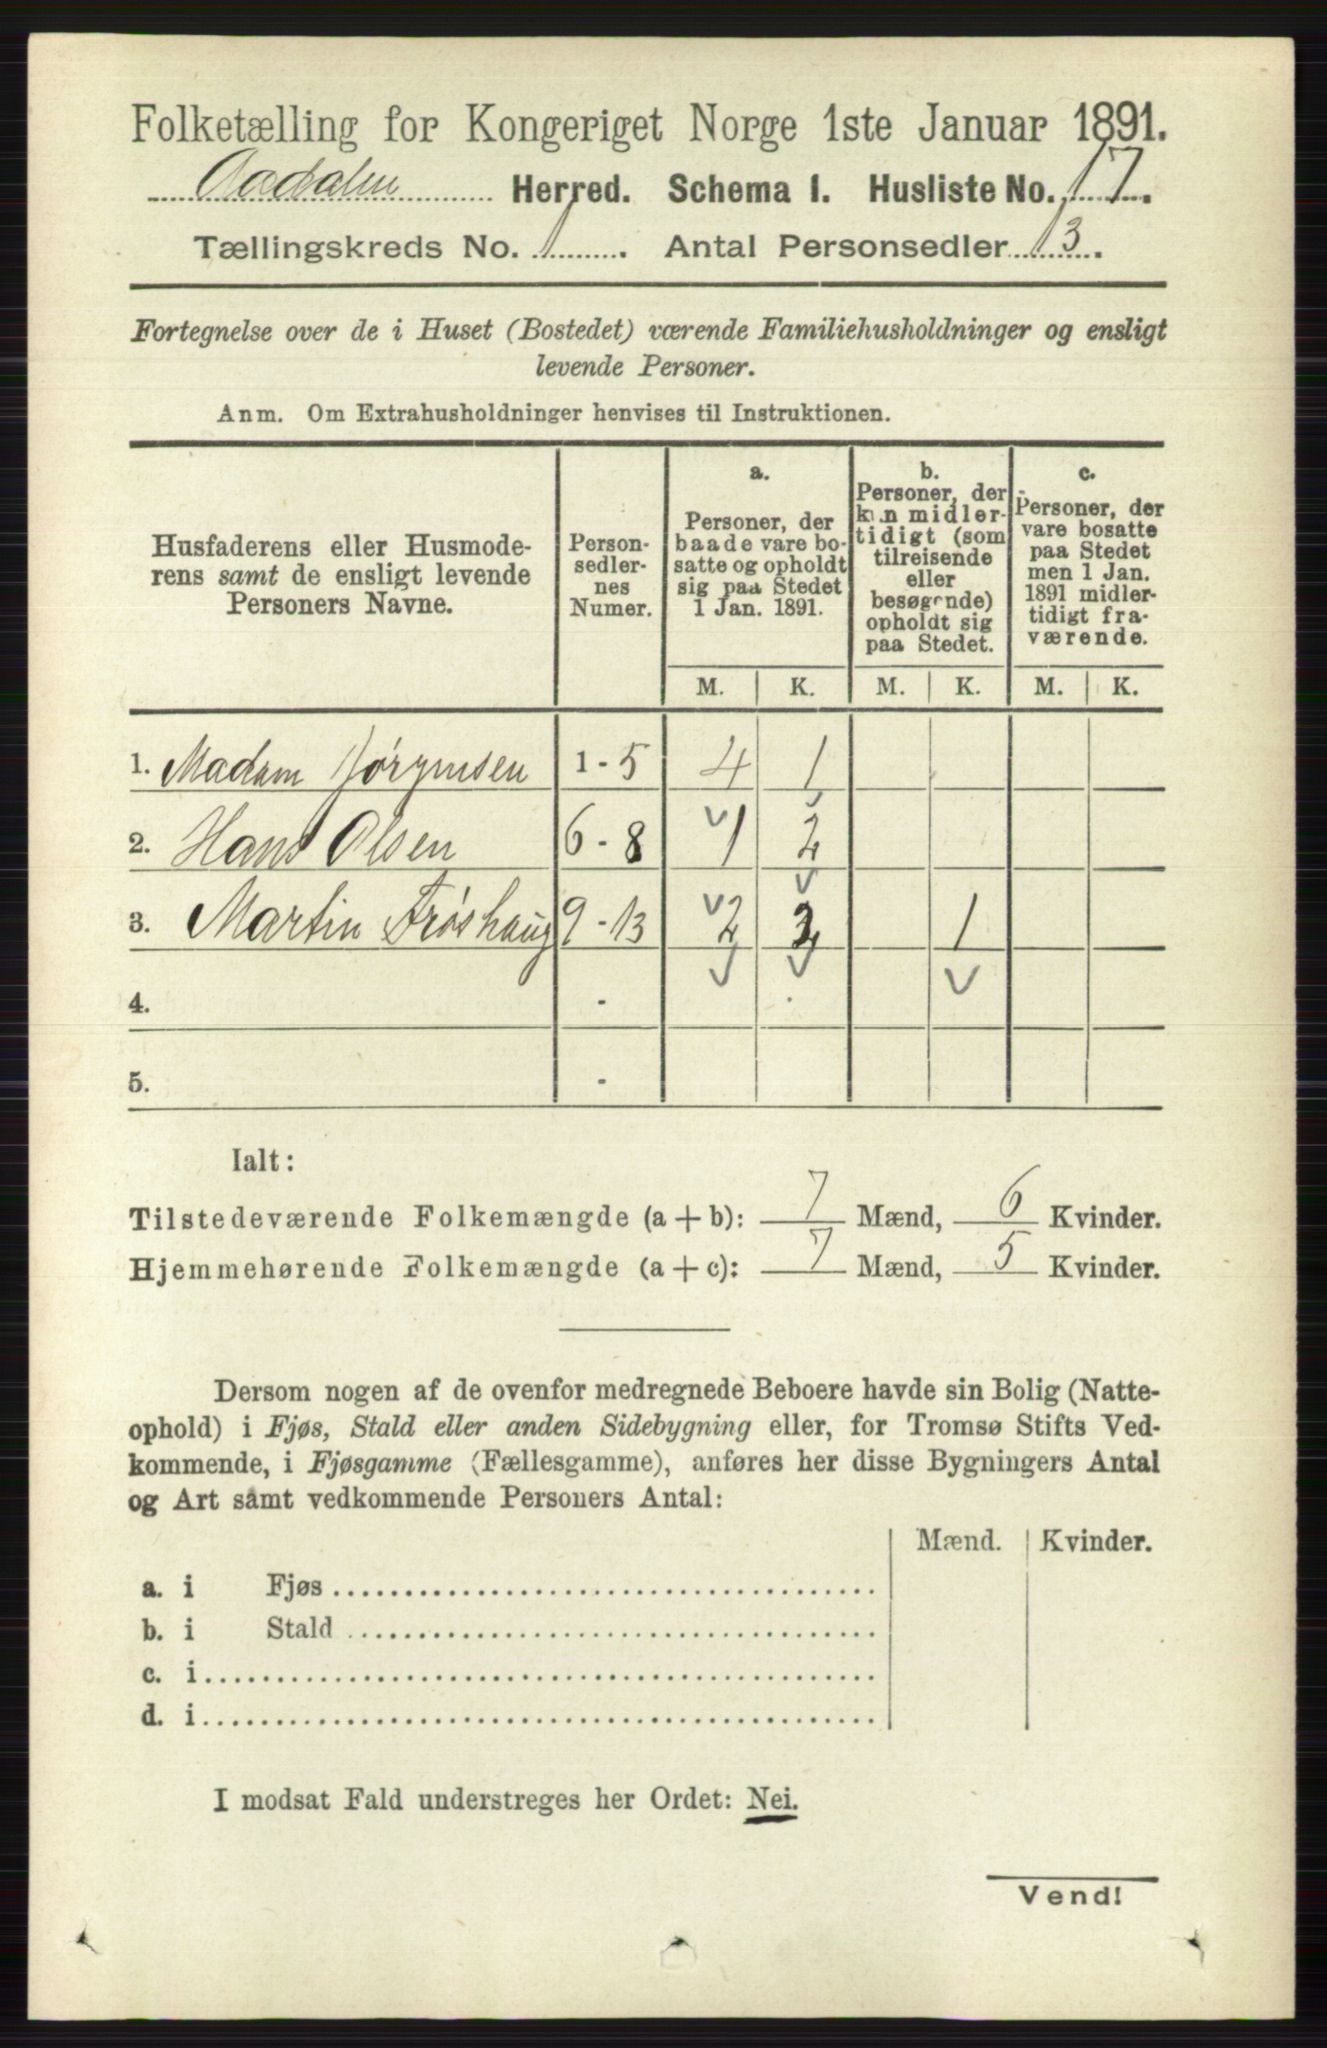 Folketælling for Kongeriget Norge 1ste Januar 1891.
Aadalen Herred. Schema 1. Husliste No. 17.
Tællingskreds No. 1. Antal Personsedler 13.
Fortegnelse over de i Huset (Bostedet) værende Familiehusholdninger og ensligt
levende Personer.
Anm. Om Extrahusholdninger henvises til Instruktionen.
Husfaderens eller Husmode-
rens samt de ensligt levende
Personers Navne.
Person-
sedler-
nes
Numer.
a.
Personer, der
baade vare bo-
satte og opholdt
sig paa Stedet
1 Jan. 1891.
b.
Personer, der
kun midler-
tidigt (som
tilreisende
eller
besøgende)
opholdt sig
paa Stedet.
c.
Personer, der
vare bosatte
paa Stedet
men 1 Jan.
1891 midler-
tidigt fra-
værende.
M. K. M. K. M. K.
1. Madam Jørgensen 1 - 5 4 1
2. Hans Olsen 6 - 8 1 2
3. Martin Frøshaug 9 - 13 2 2 1
4. -
5. -
Ialt:
Tilstedeværende Folkemængde (a + b): 7 Mænd, 6 Kvinder.
Hjemmehørende Folkemængde (a + c): 7 Mænd, 5 Kvinder.
Dersom nogen af de ovenfor medregnede Beboere havde sin Bolig (Natte-
ophold) i Fjøs, Stald eller anden Sidebygning eller, for Tromsø Stifts Ved-
kommende, i Fjøsgamme (Fællesgamme), anføres her disse Bygningers Antal
og Art samt vedkommende Personers Antal:
Mænd. Kvinder.
a. i Fjøs
b. i Stald
c. i
d. i
I modsat Fald understreges her Ordet: Nei.
Vend!